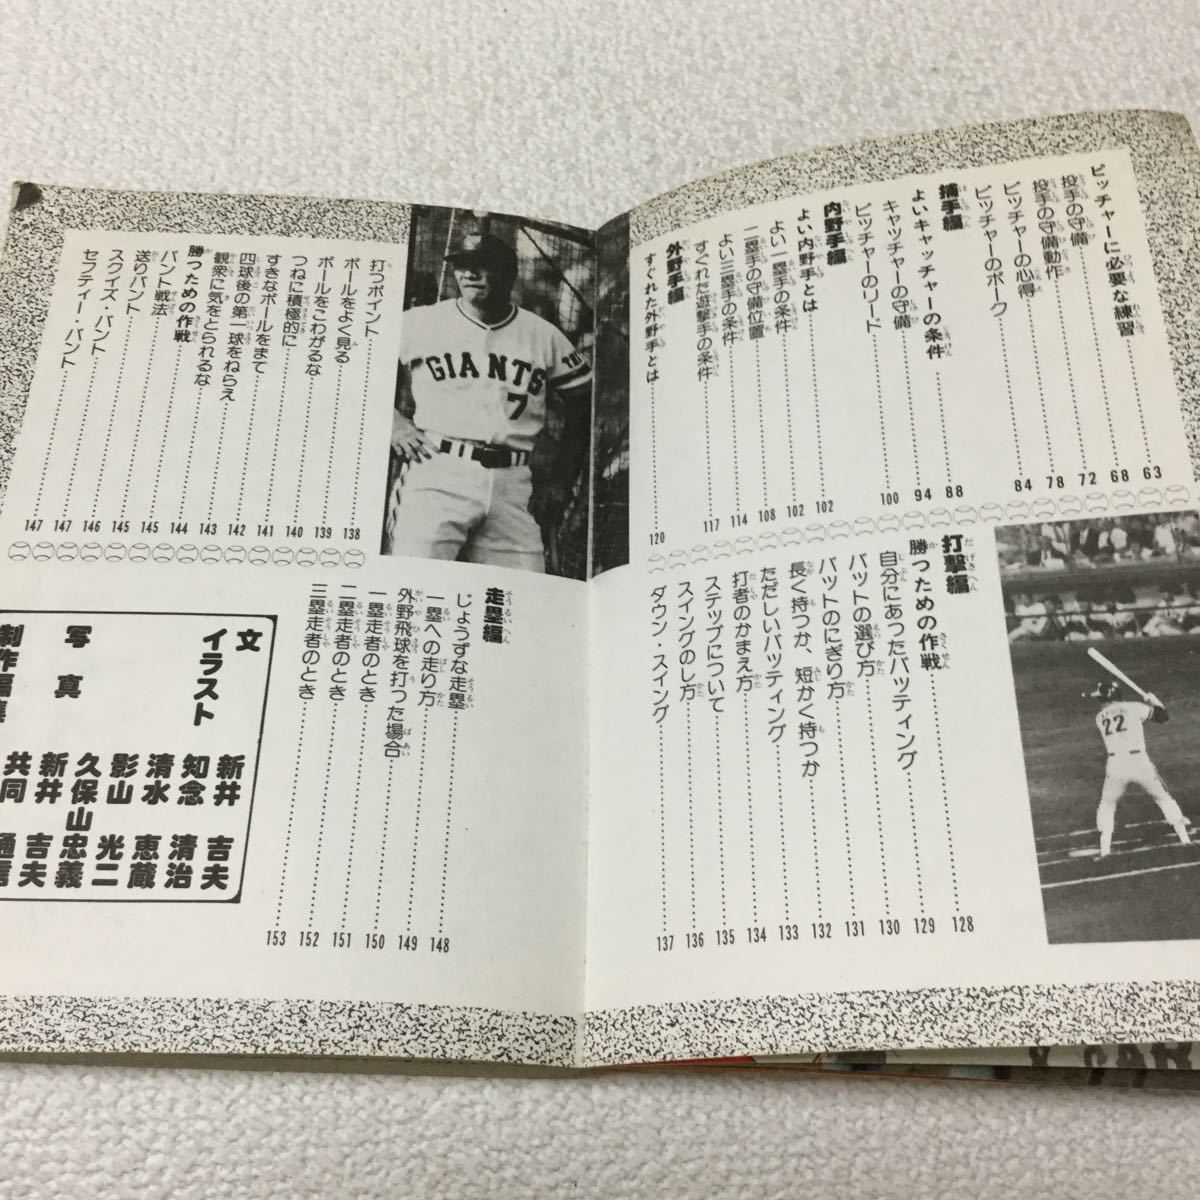 ピッチャーに必要な練習……63
投手の守備……68
投手の守備動作……72
ピッチャーの心得……78
ピッチャーのボーク……84
捕手編
よいキャッチャーの条件……88
キャッチャーの守備……94
ピッチャーのリード……100
内野手編
よい内野手とは……102
よい一塁手の条件……102
二塁手の守備位置……108
よい三塁手の条件……114
すぐれた遊撃手の条件……117
外野手編
すぐれた外野手とは……120
打撃編
勝つための作戦……128
自分にあったバッティング……129
バットの選び方……130
バットのにぎり方……131
長く持つか、短かく持つか……132
ただしいバッティング……133
打者のかまえ方……134
ステップについて……135
スイングのし方……136
ダウン・スイング……137
22
GIANTS
7
打つポイント……138
ボールをよく見る……139
ボールをこわがるな……140
つねに積極的に……141
すきなボールをまて……142
四球後の第一球をねらえ……143
観衆に気をとられるな……144
勝つための作戦
バント戦法……145
送りバント……145
スクイズ・バント……146
セフティー・バント……147
147
走塁編
じょうずな走塁……148
一塁への走り方……149
外野飛球を打った場合……150
一塁走者のとき……151
二塁走者のとき……152
三塁走者のとき……153
文 新井 吉夫
イラスト 知念 清治
清水 恵蔵
影山 光二
写真 久保山 忠義
新井 吉夫
制作編集 共同通信